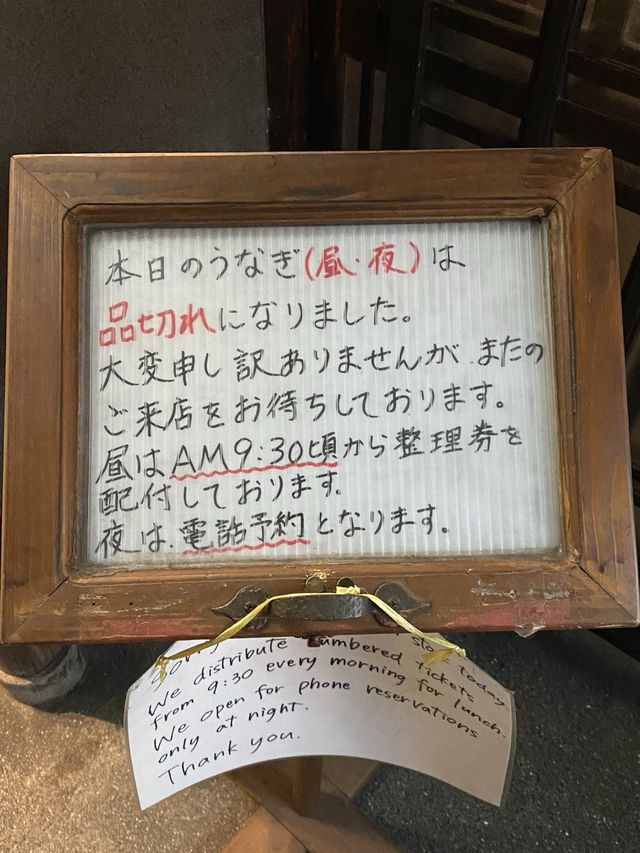 本日のうなぎ(昼・夜)は
品切れになりました。
大変申し訳ありませんが、またの
ご来店をお待ちしております。
昼はAM9:30頃から整理券を
配付しております。
夜は、電話予約となります。
today
We distribute numbered tickets
from 9:30 every morning for lunch.
We open for phone reservations
only at night.
Thank you.